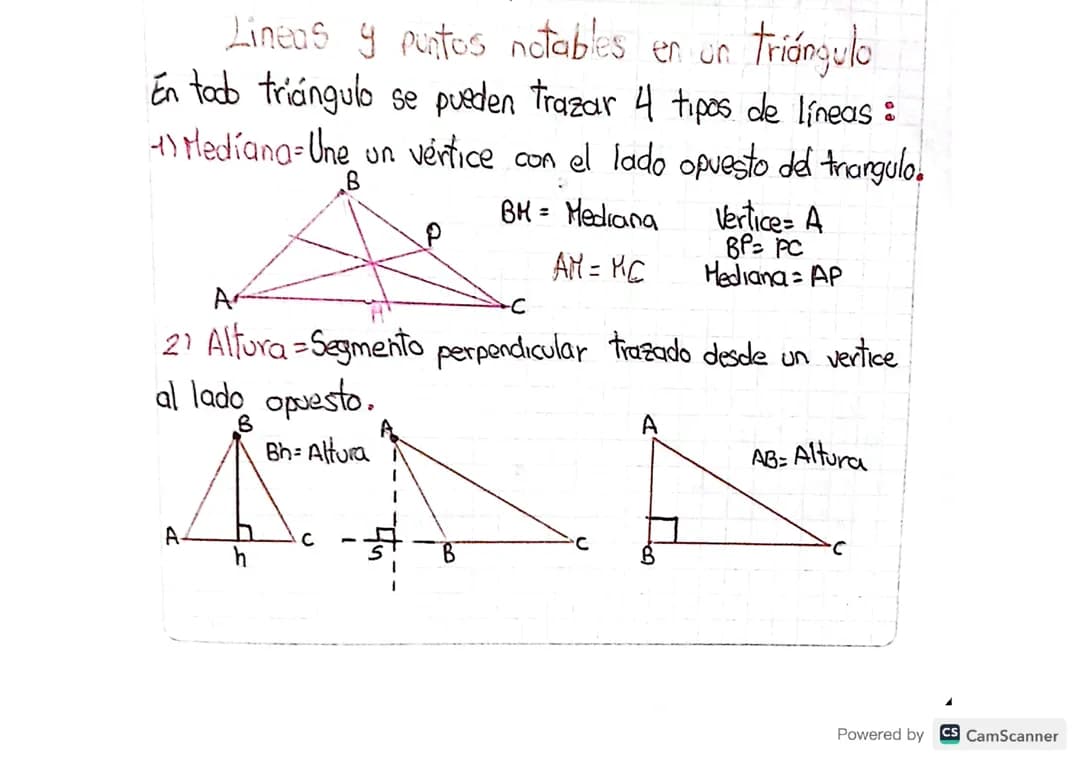 Lineas y puntos notables en un triángulo
En todo triángulo se pueden trazar 4 tipos de líneas:
1) Mediana=Une un vértice con el lado opuesto del triangulo.
B
BM = Mediana Vertice= A
P BP= PC
AM = MC Mediana = AP
A M C
2) Altura=Segmento perpendicular trazado desde un vertice
al lado opuesto.
B A A
Bh= Altura AB= Altura
A h C S B C B C
Powered by CS CamScanner